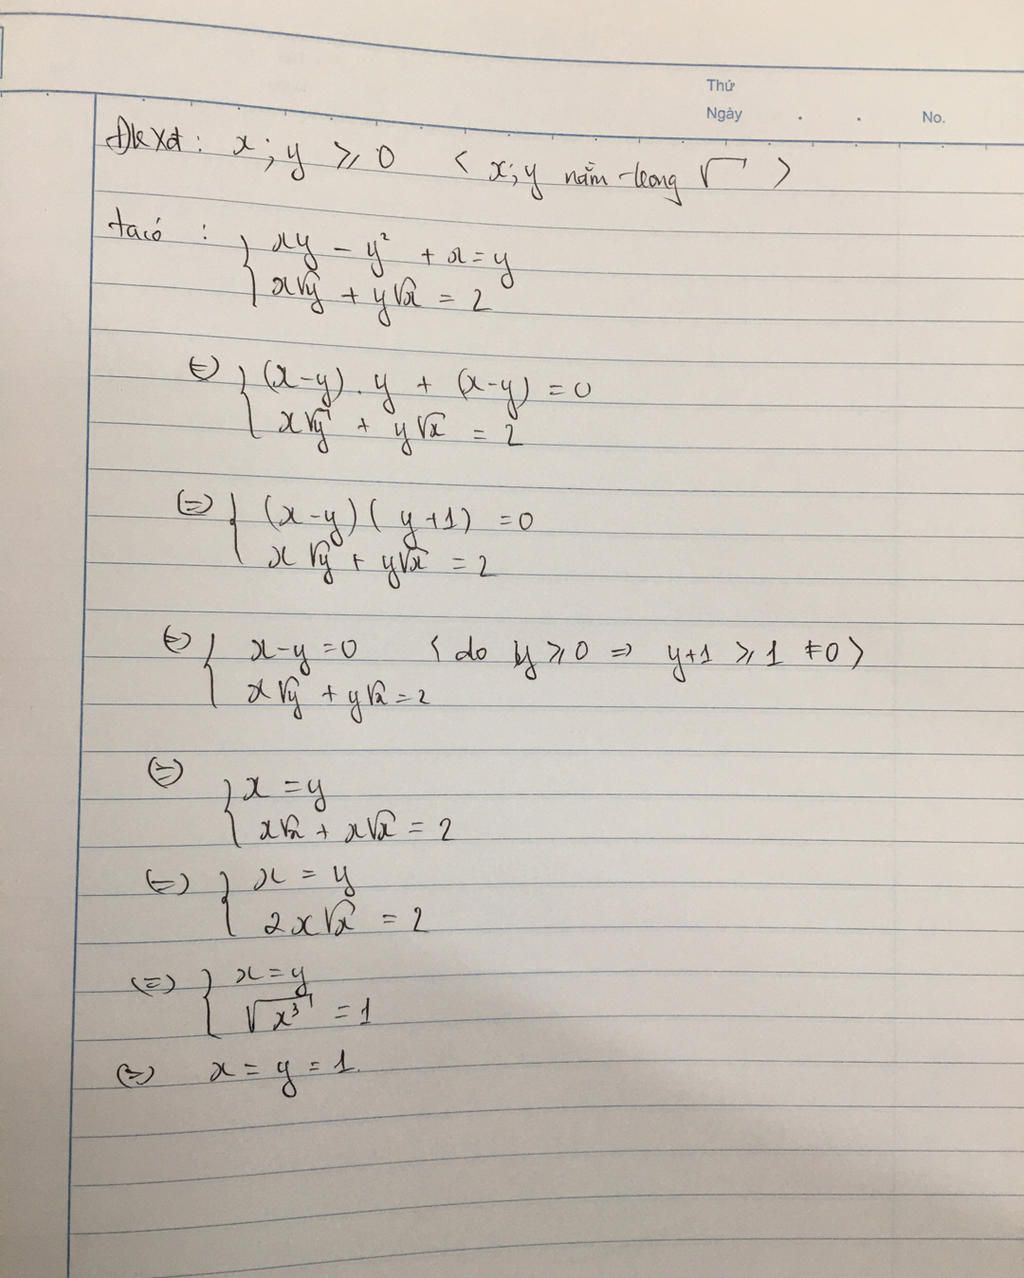 Thứ
Ngày . . No.
Đk Xđ : x ; y ⩾ 0 < x; y nằm trong √ >
ta có : { xy - y² + x = y
x√y + y√x = 2
(=) { (x-y) . y + (x-y) = 0
x√y + y√x = 2
(=) { (x-y) ( y+1) = 0
x√y + y√x = 2
(=) { x-y = 0 < do y ⩾ 0 => y+1 ⩾ 1 ≠ 0 >
x√y + y√x = 2
(=) { x = y
x√x + x√x = 2
(=) { x = y
2x√x = 2
(=) { x = y
√x³ = 1
(=) x = y = 1.